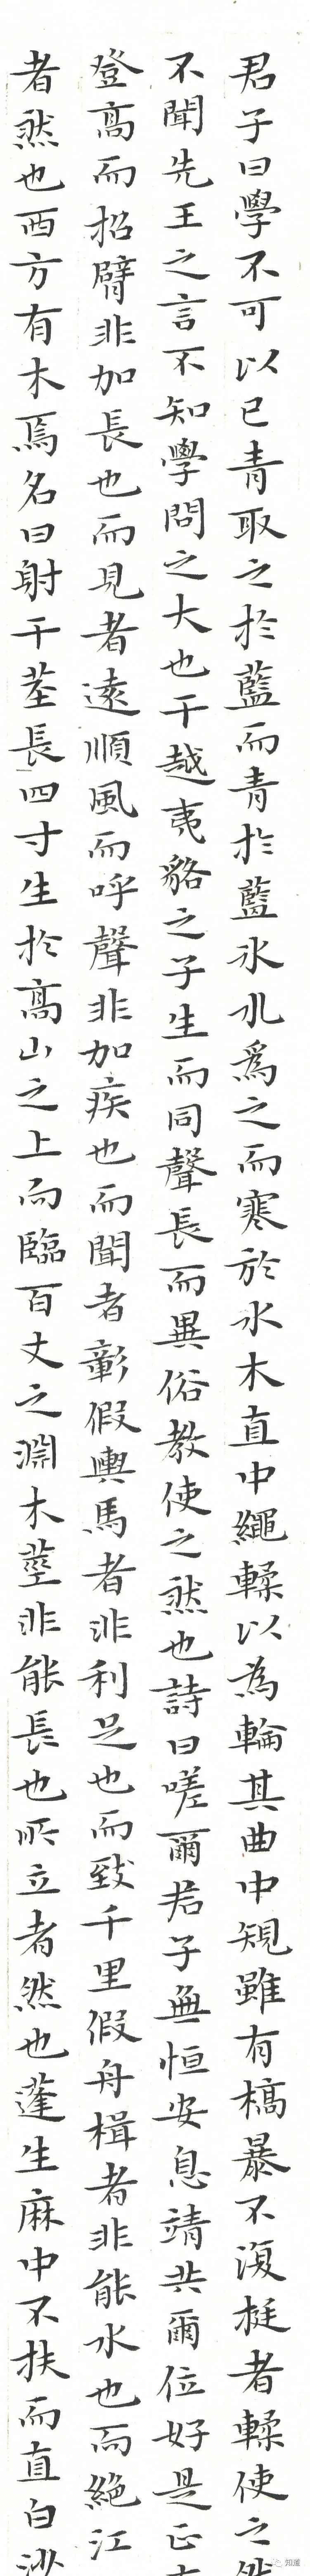 君子曰學不可以已青取之於藍而青於藍冰水爲之而寒於水木直中繩輮以為輪其曲中規雖有槁暴不復挺者輮使之然
不聞先王之言不知學問之大也干越夷貉之子生而同聲長而異俗教使之然也詩曰嗟爾君子無恒安息靖共爾位好是正
登高而招臂非加長也而見者遠順風而呼聲非加疾也而聞者彰假輿馬者非利足也而致千里假舟楫者非能水也而絕江
者然也西方有木焉名曰射干莖長四寸生於高山之上而臨百丈之淵木莖非能長也所立者然也蓬生麻中不扶而直白沙
知蓮